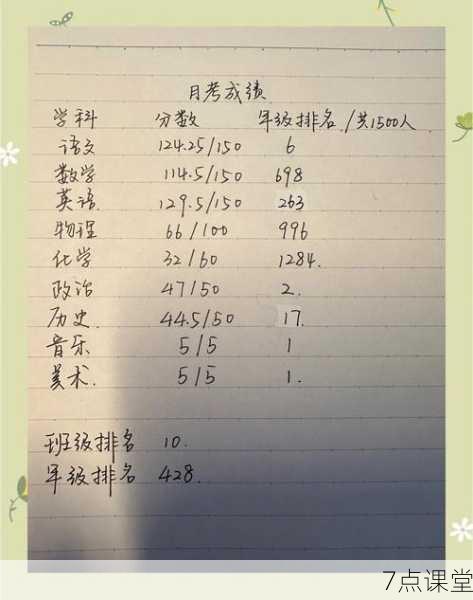 月考成绩
学科 分数 年级排名/共1500人
语文 124.25/150 6
数学 114.5/150 698
英语. 129.5/150 263
物理 66/100 996
化学 32/60 1284.
政治 47/50 2.
历史. 44.5/50 17.
音乐 5/5 1
美术. 5/5 1.
班级排名 10.
年级排名 428.
7点课堂